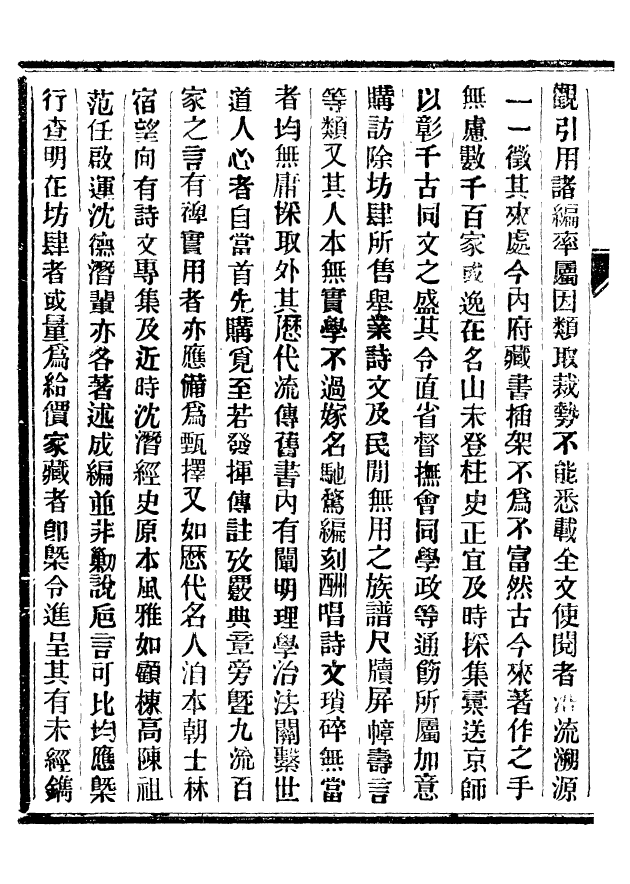 觀引用諸編率屬因類取裁勢不能悉載全文使閱者沿流溯源
一一徵其來處今內府藏書插架不爲不富然古今來著作之手
無慮數千百家或逸在名山未登柱史正宜及時採集彚送京師
以彰千古同文之盛其令直省督撫會同學政等通飭所屬加意
購訪除坊肆所售舉業詩文及民閒無用之族譜尺牘屏幛壽言
等類又其人本無實學不過嫁名馳騖編刻酬唱詩文瑣碎無當
者均無庸採取外其歷代流傳舊書內有闡明理學治法關繫世
道人心者自當首先購覓至若發揮傳註攷覈典章旁曁九流百
家之言有裨實用者亦應備爲甄擇又如歷代名人洎本朝士林
宿望向有詩文專集及近時沈潛經史原本風雅如顧棟高陳祖
范任啟運沈德潛輩亦各著述成編並非勦說巵言可比均應槩
行查明在坊肆者或量爲給價家藏者卽槩令進呈其有未經鐫